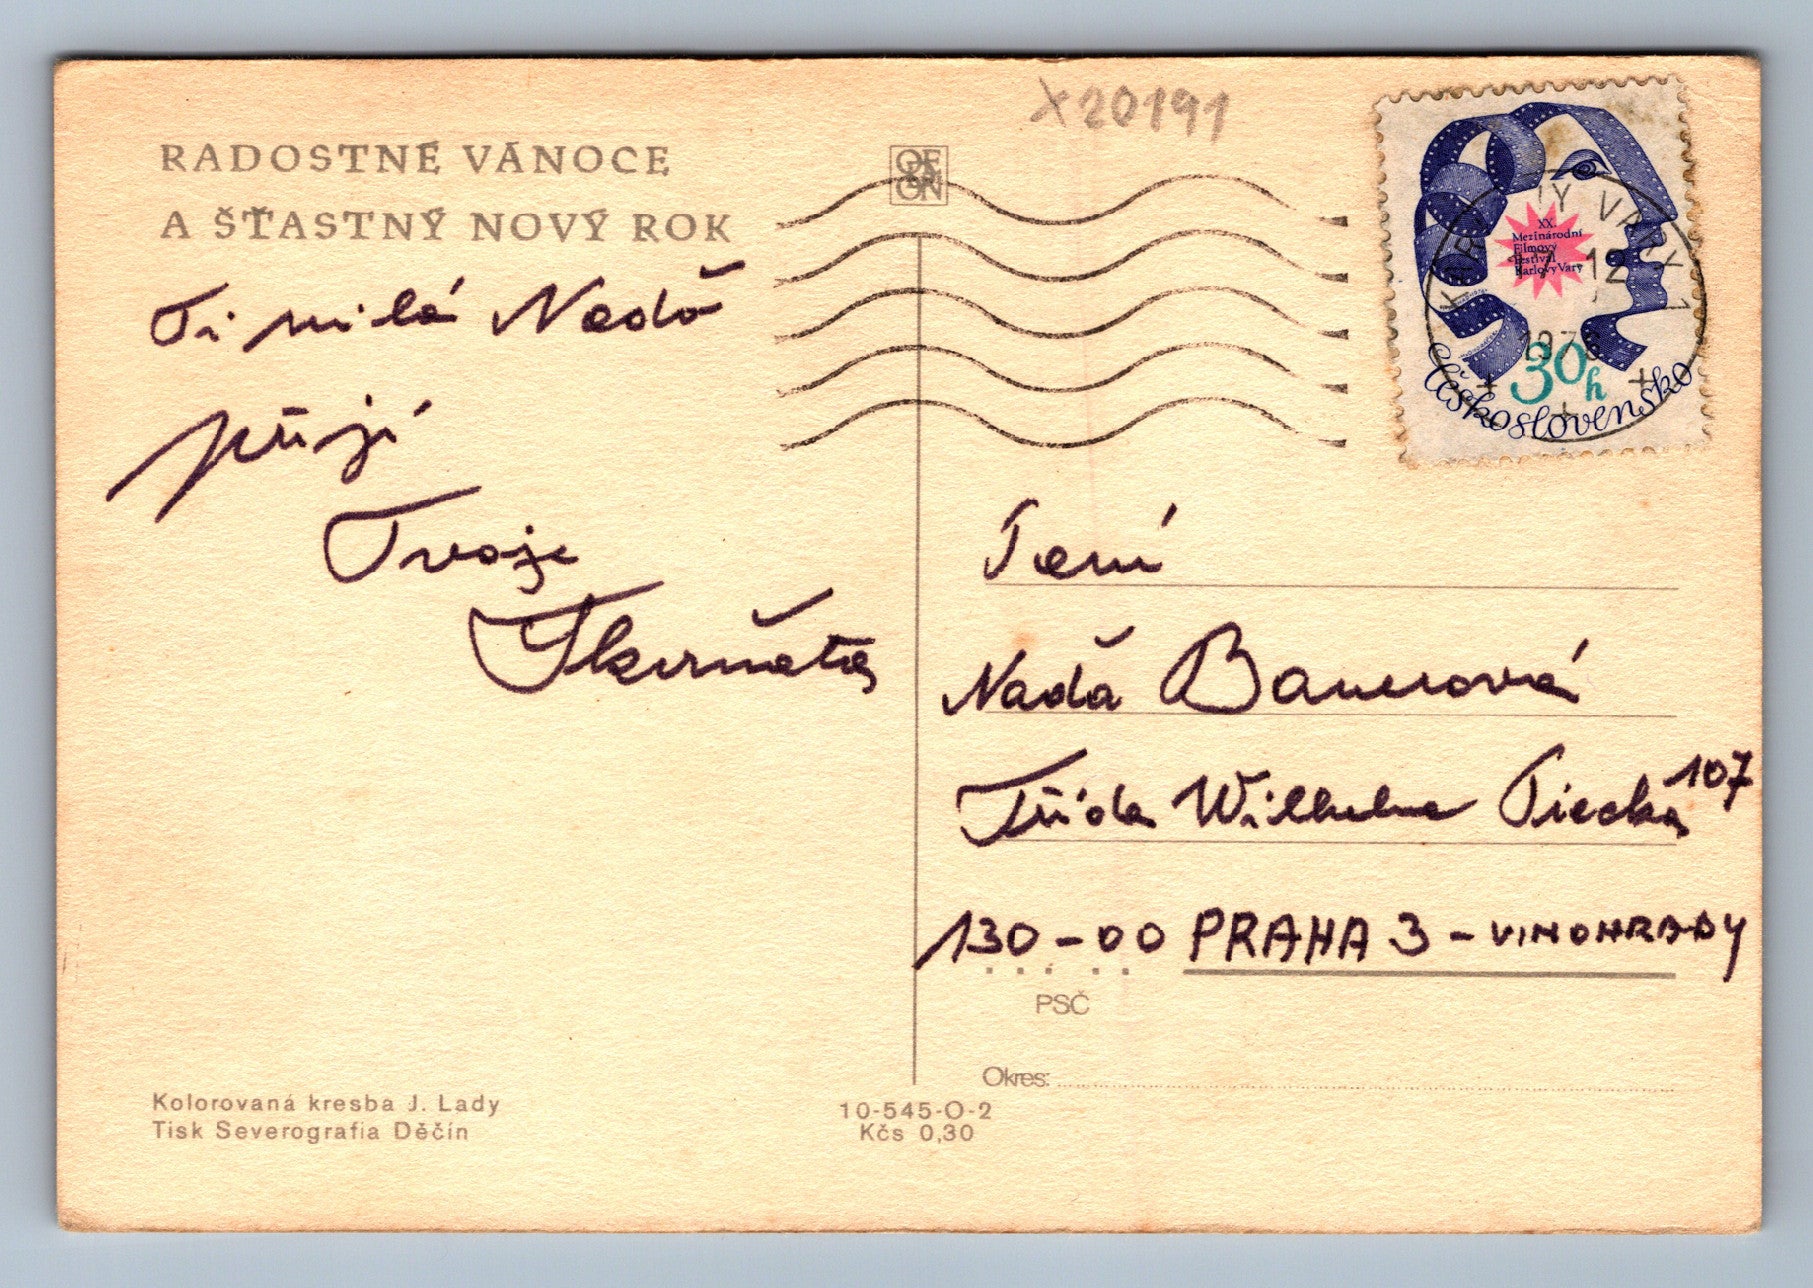 X20191
RADOSTNÉ VÁNOCE
A ŠŤASTNÝ NOVÝ ROK
Ti milá Naďo
přejí
Tvoje
XX.
Mezinárodní
Filmový
Festival
Karlovy Vary
30h
Československo
KARLOVY VARY 1
Paní
Naďa Bauerová
Třída Wilhelma Piecka 107
130-00 PRAHA 3 - VINOHRADY
PSČ
Okres:
Kolorovaná kresba J. Lady
Tisk Severografia Děčín
10-545-O-2
Kčs 0,30